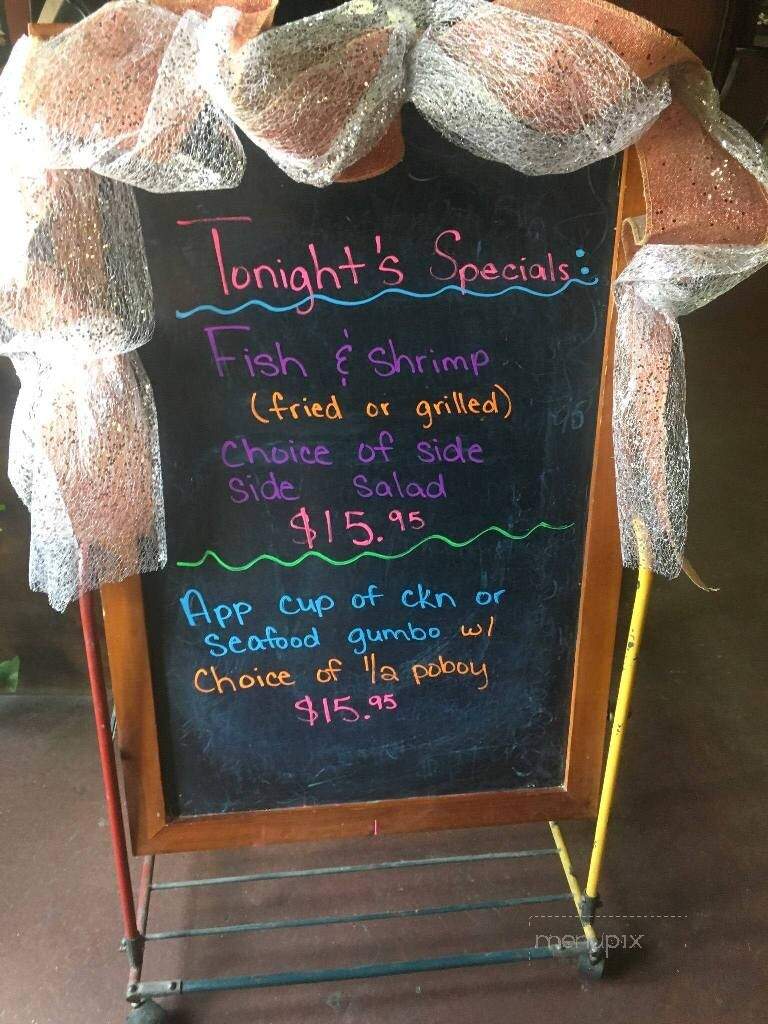 Tonight's Specials:
Fish & shrimp
(fried or grilled)
Choice of side
side salad
$15.95
App cup of ckn or
seafood gumbo w/
Choice of 1/2 poboy
$15.95
menupix